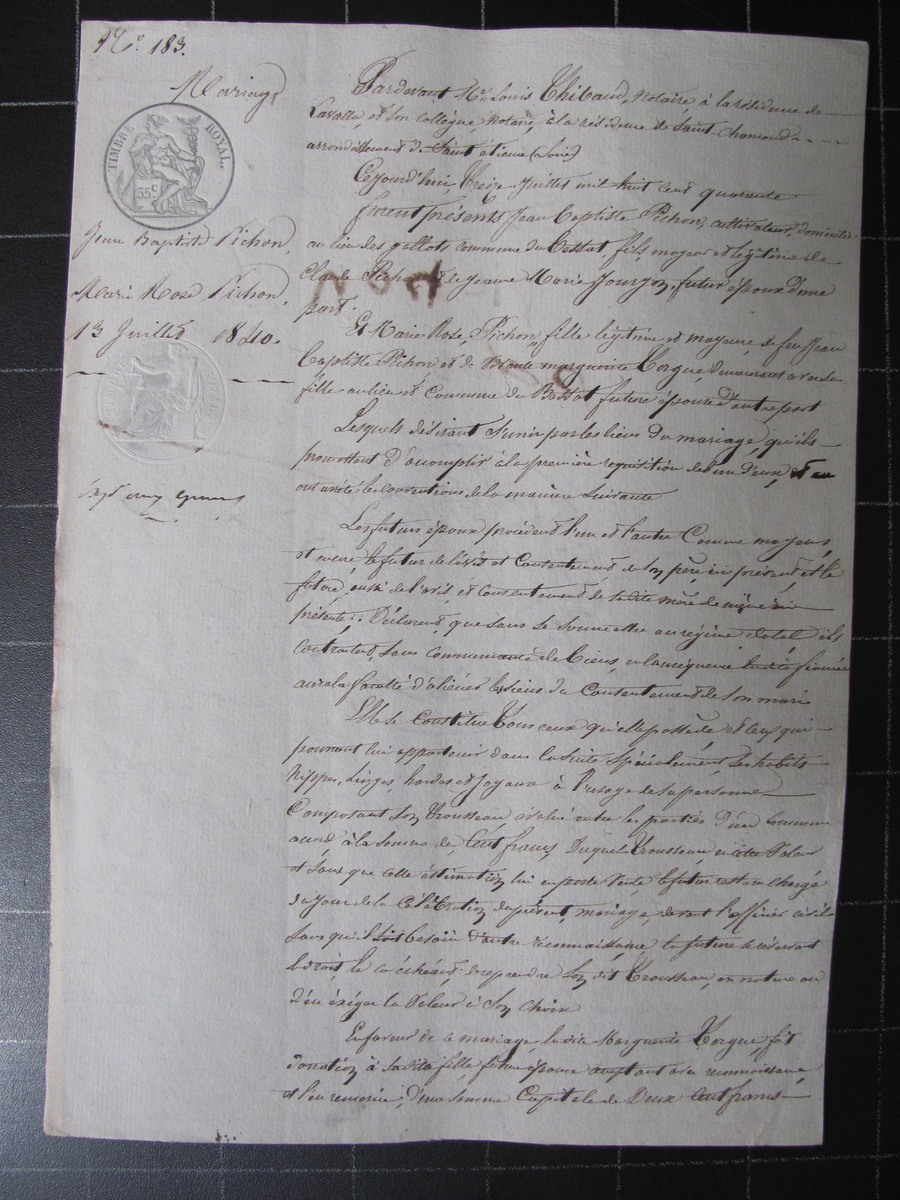 N.° 183.
Mariage
TIMBRE ROYAL.
35 c
Jean Baptiste Pichon,
Marie Rose Pichon,
13 Juillet 1840.
Pardevant M.e Louis Thibaud, Notaire à la résidence de
Lavalla, et son collègue, Notaire, à la résidence de Saint Chamond
arrondissement de Saint etienne (Loire)
Cejourd'hui treize Juillet mil huit cent quarante
furent présents Jean Baptiste Pichon, cultivateur, domicilié
au lieu des gallots commune du Bessat, fils majeur et légitime de
Claude Pichon et de Jeanne Marie Jourjon, futur époux d'une
part.
Et Marie Rose Pichon, fille légitime et majeure, de feu Jean
Baptiste Pichon et de vivante marguerite Torgue, demeurant avec sa
fille au lieu et Commune du Bessat, future épouse d'autre part
Lesquels désirant s'unir par les liens du mariage, qu'ils
promettent d'accomplir à la première requisition de l'un d'eux, et en
ont arrêté les conventions de la manière suivante
Les futurs époux procèdent l'un et l'autre Comme majeurs,
et encore le futur de l'avis et Consentement de son père ici présent, et la
future, aussi de l'avis, et consentement de sa dite mère de même ici
présente. Déclarent, que sans se soumettre au régime dotal, ils
contractent, sans communauté de biens, en conséquence la dite fiancée
aura la faculté d'aliéner les siens du Consentement de son mari
Elle se Constitue tous ceux qu'elle possède et ceux qui
pourront lui appartenir dans la suite spécialement ses habits
Nippes, Linges, hardes et Joyaux à l'usage de sa personne
Composant son trousseau évalué entre les parties d'un commun
accord à la somme de, Cent francs, Duquel trousseau, en cette valeur
et sans que cette éstimation lui en porte vente le futur restera chargé
du jour de la Célébration du présent, mariage, devant l'officier civil
sans qu'il soit besoin d'autre reconnaissance, la future se réservant
le droit, le cas échéant, de reprendre son dit trousseau, en nature ou
d'en éxiger la valeur à son choix
En faveur de ce mariage, la dite Marguerite Torgue, fait
donation à sa dite fille, future épouse acceptant avec reconnaissance
et l'en remercie, d'une somme Capitale de Deux cent francs